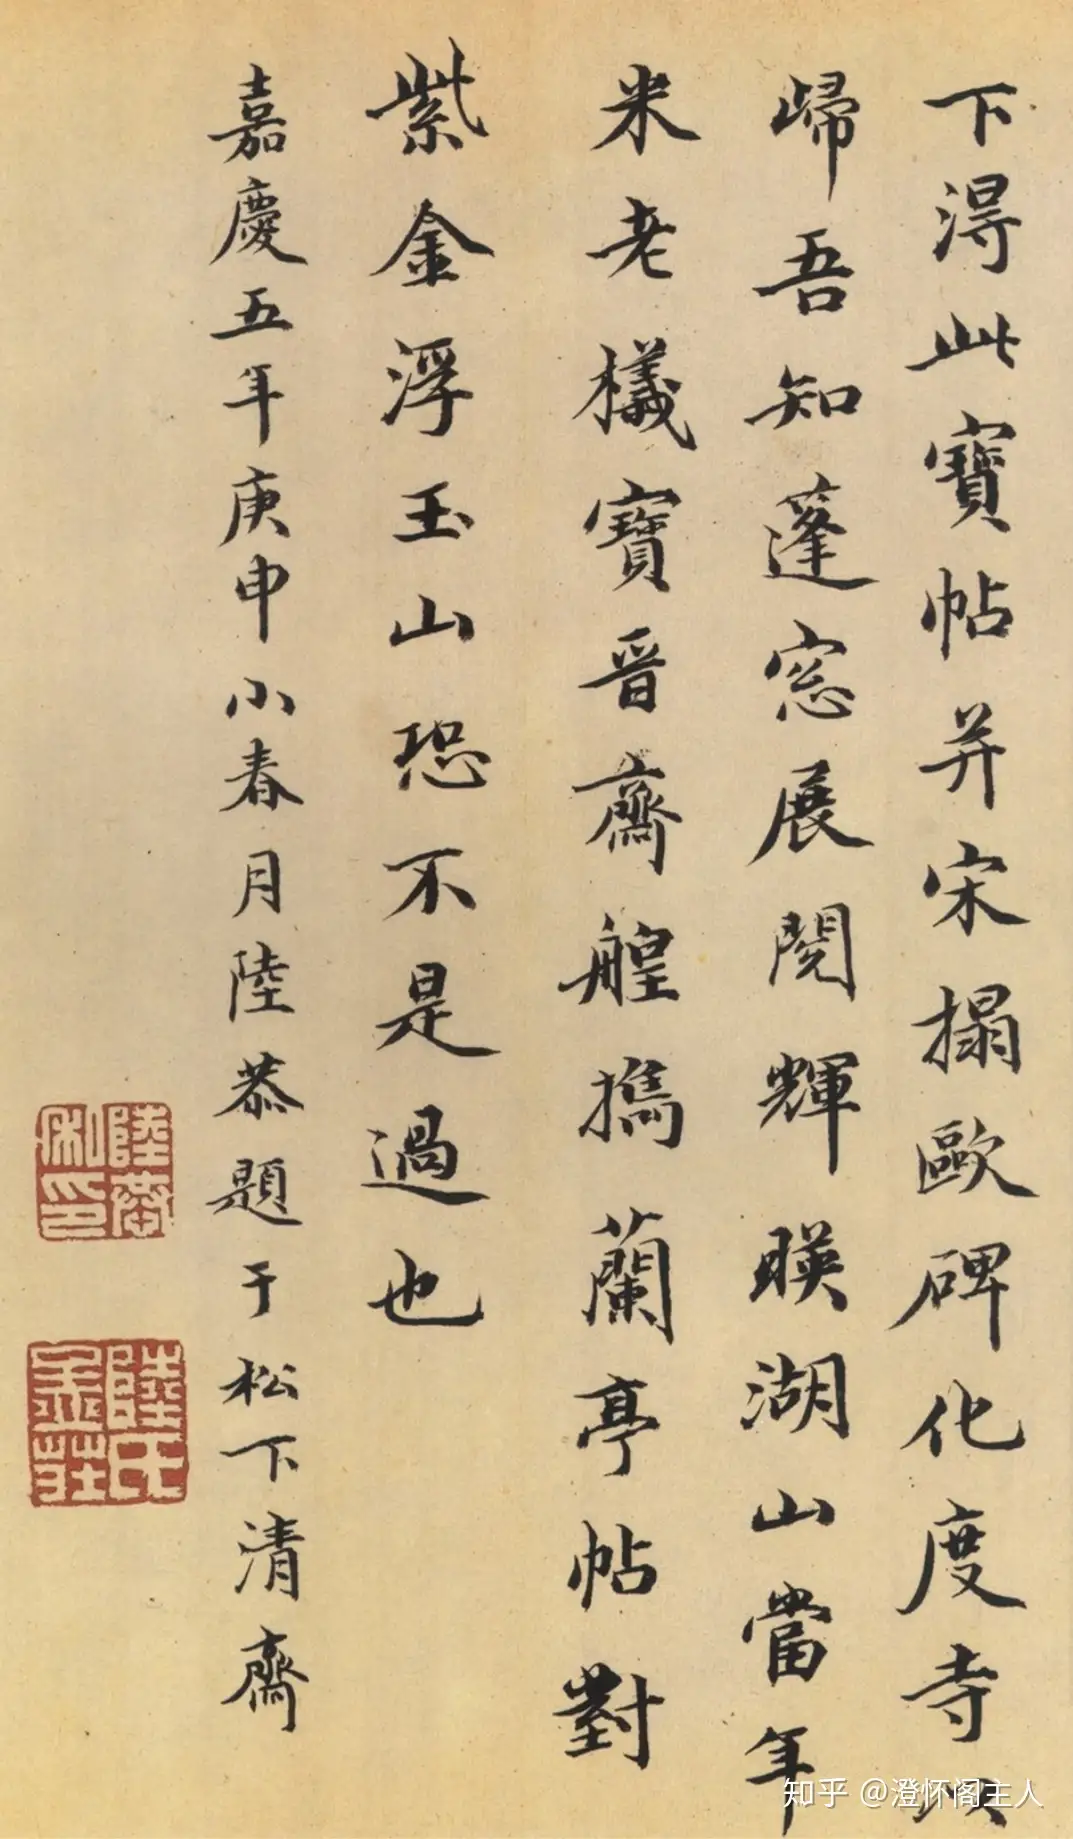 下淂此寶帖并宋搨歐碑化度寺以
歸吾知蓬窓展閱輝暎湖山當年
米老檥寶晉齋艎擕蘭亭帖對
紫金浮玉山恐不是過也
嘉慶五年庚申小春月陸恭題于松下清齋
陸恭私印
陸氏
知乎 @澄怀阁主人